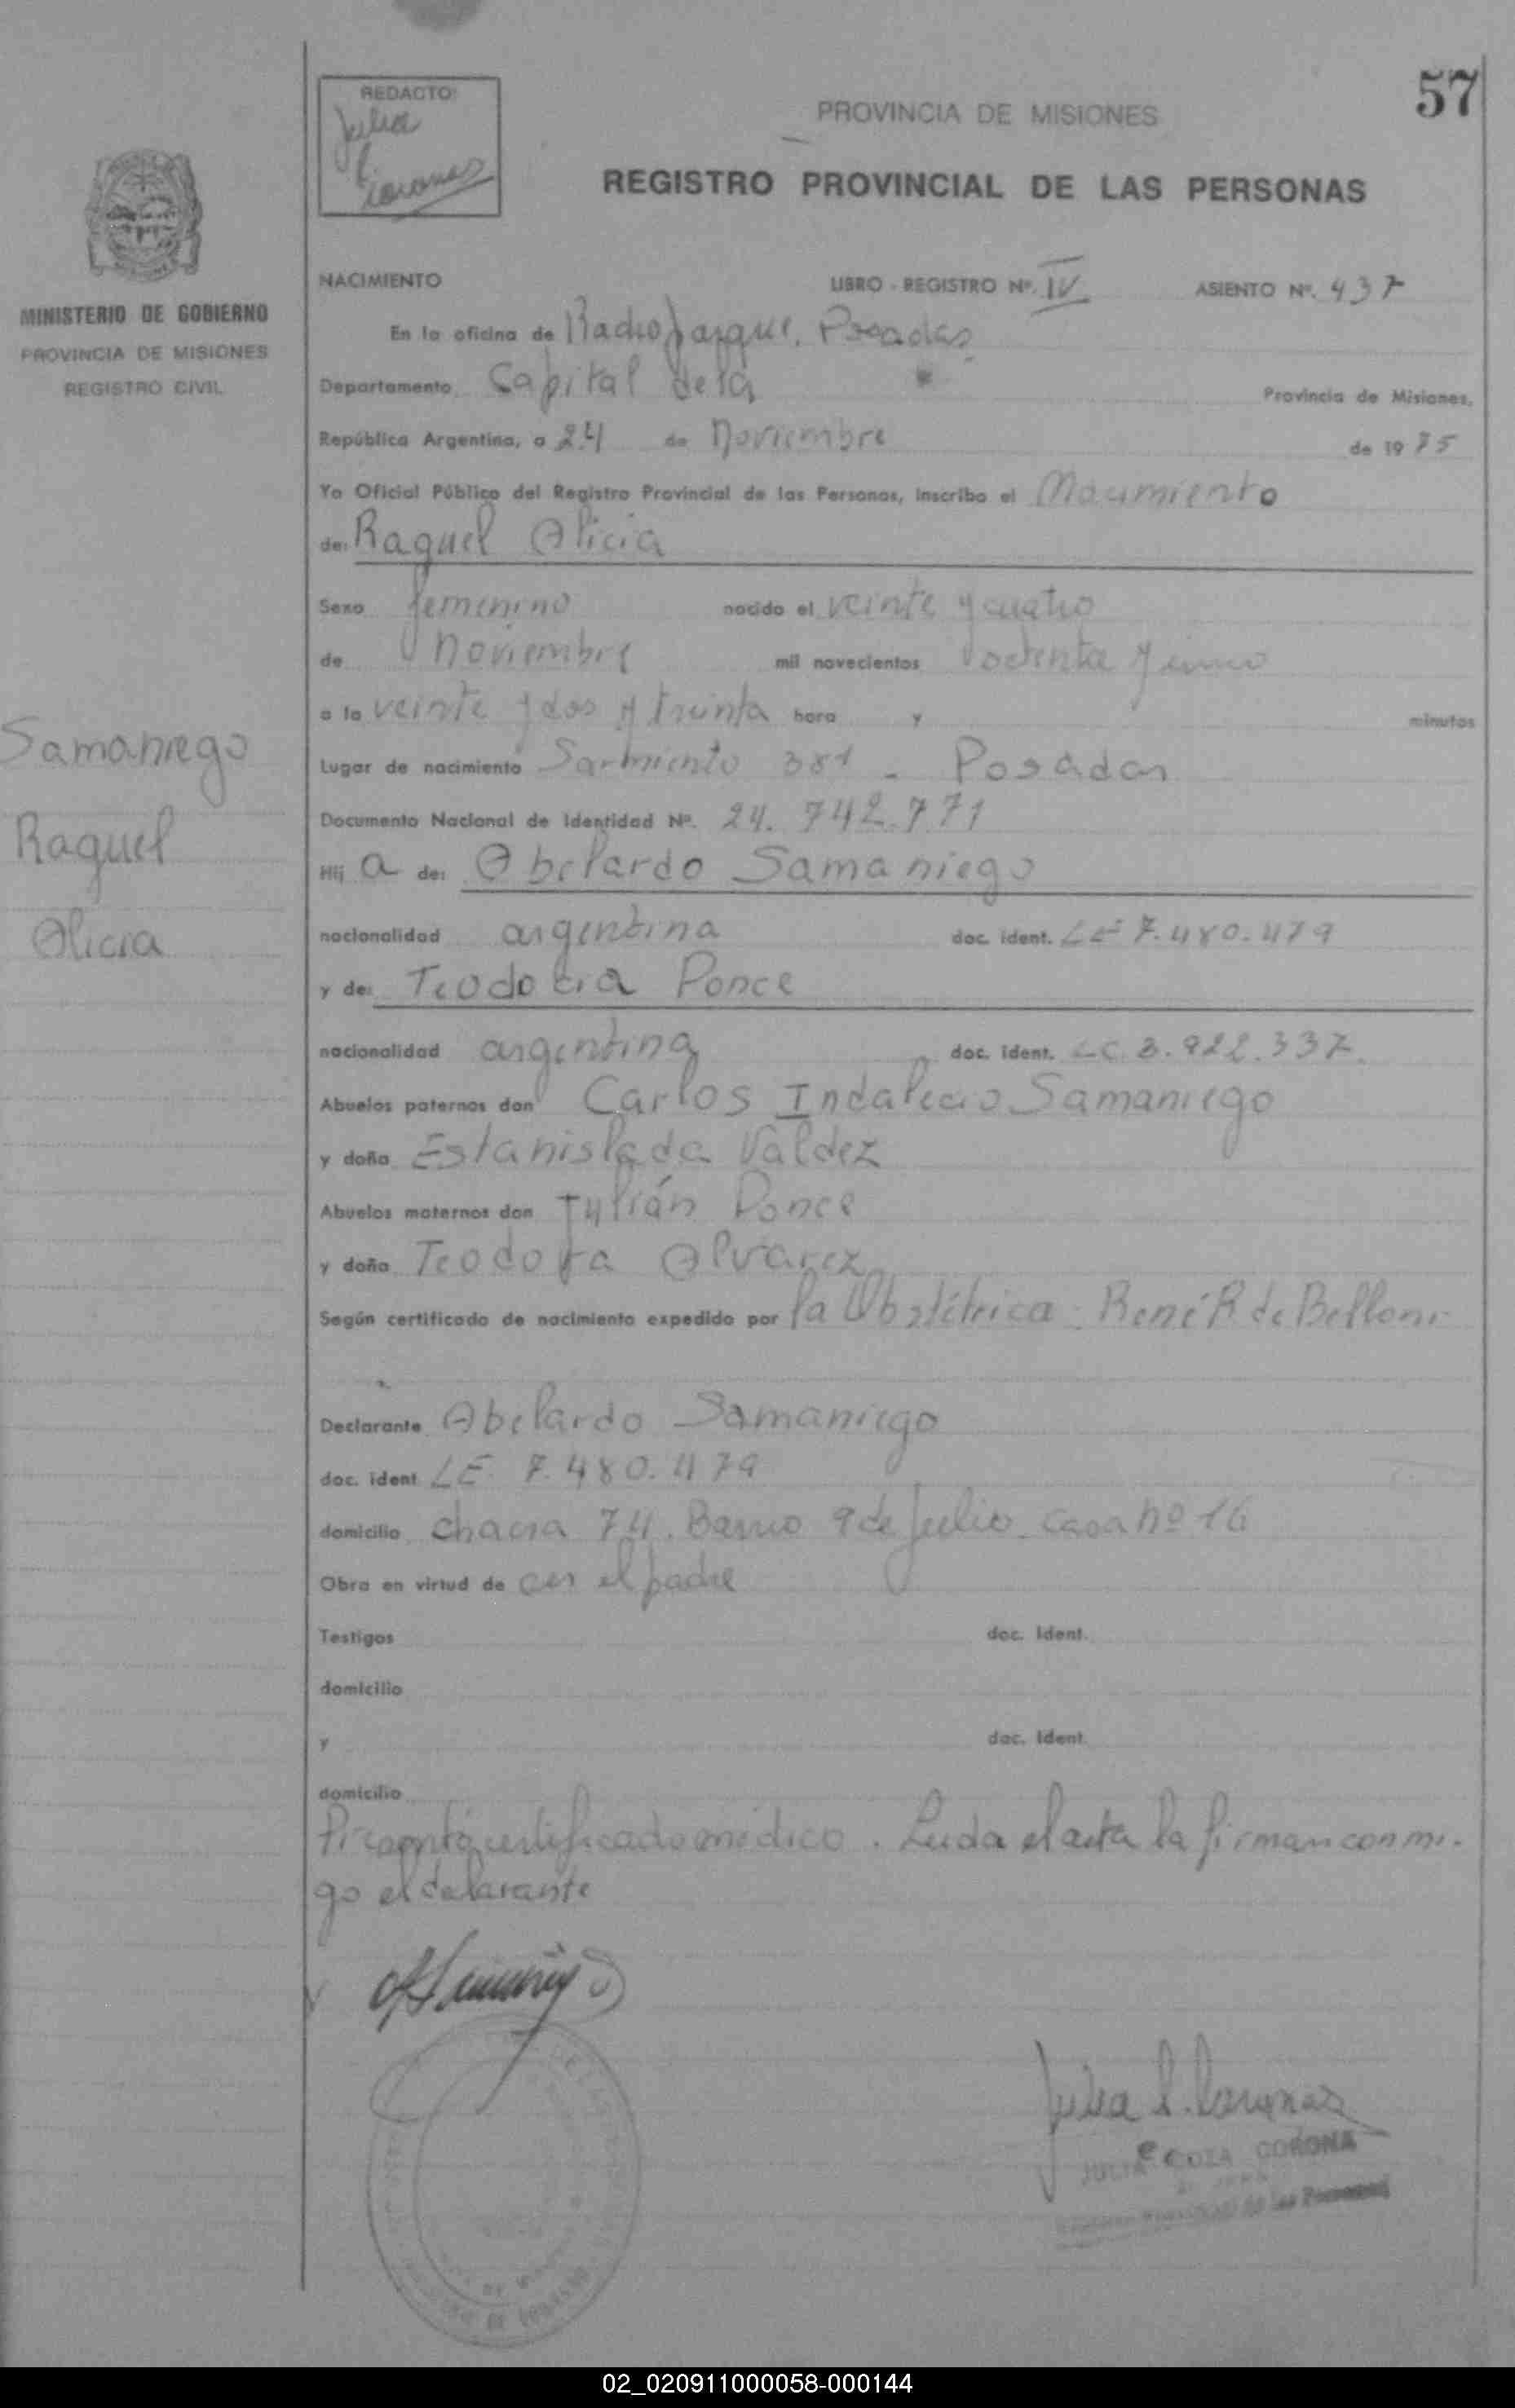 57
REDACTO:
Julia
Coronas
PROVINCIA DE MISIONES
REGISTRO PROVINCIAL DE LAS PERSONAS
MINISTERIO DE GOBIERNO
PROVINCIA DE MISIONES
REGISTRO CIVIL
NACIMIENTO LIBRO - REGISTRO Nº. IV ASIENTO Nº. 437
En la oficina de Radioparque. Posadas
Departamento Capital de la Provincia de Misiones,
República Argentina, a 24 de Noviembre de 1975
Yo Oficial Público del Registro Provincial de las Personas, inscribo el Nacimiento
de: Raquel Alicia
Sexo femenino nacido el veinte y cuatro
de noviembre mil novecientos setenta y cinco
a la veinte y dos y treinta hora y minutos
Lugar de nacimiento Sarmiento 381 - Posadas
Documento Nacional de Identidad Nº. 24.742.771
Hij a de: Abelardo Samaniego
nacionalidad argentina doc. ident. LE 7.480.479
y de: Teodocia Ponce
nacionalidad argentina doc. ident. LC. 3.922.337
Abuelos paternos don Carlos Indalecio Samaniego
y doña Estanislada Valdez
Abuelos maternos don Julián Ponce
y doña Teodora Alvarez
Según certificado de nacimiento expedido por la Obstétrica: René R de Belloni
Declarante Abelardo Samaniego
doc. ident LE. 7.480.479
domicilio chacra 74. Barrio 9 de Julio. casa nº 16
Obra en virtud de ser el padre
Testigos doc. ident.
domicilio
y doc. ident.
domicilio
Presentó certificado médico. Leida el acta la firman conmi-
go el declarante
Samaniego
Raquel
Alicia
Julia L. Coronas
JULIA CORONA
de las Personas
02_020911000058-000144